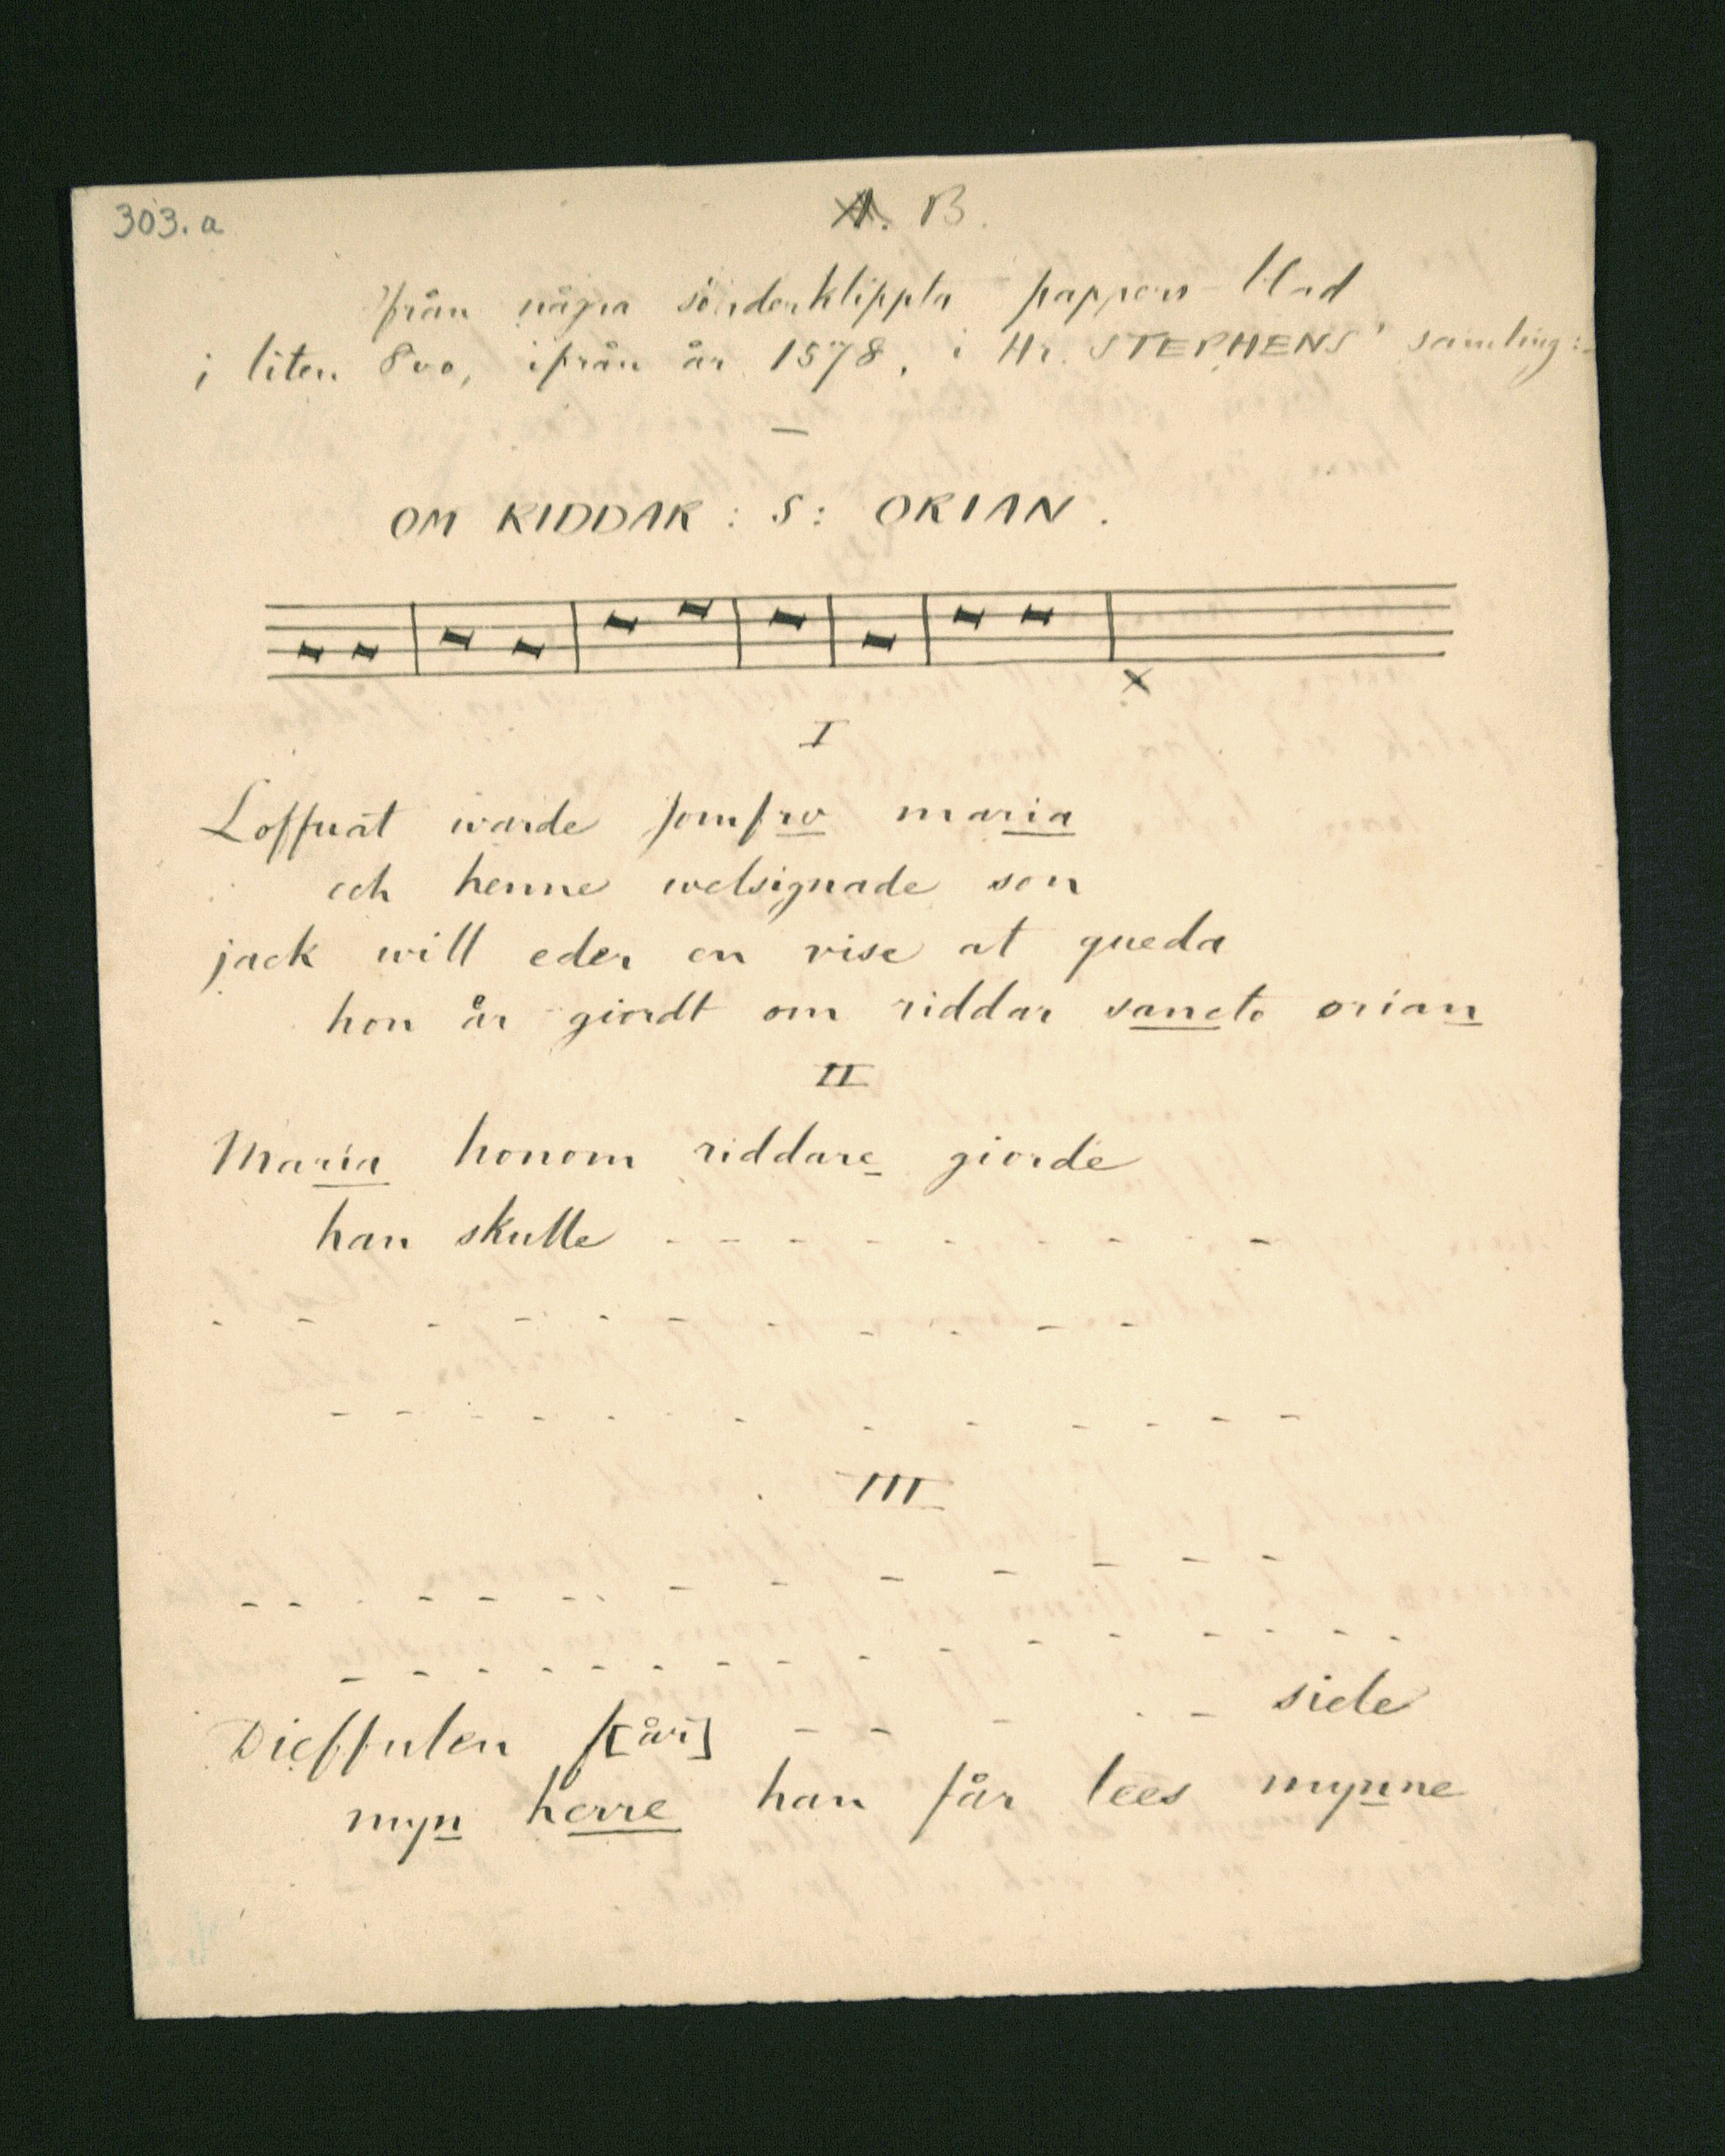 303.a
A. B.
från några sönderklippta pappers-blad
i liten 8vo, ifrån år 1578, i Hr. STEPHENS' samling:-
OM RIDDAR: S: ORIAN.
x
I
Loffuat warde jomfrv maria
och henne welsignade son
jack will eder en vise at queda
hon år giordt om riddar sancto orian
II
Maria honom riddare giorde
han skulle - - - - - - - - -
- - - - - - - - - - -
- - - - - - - - - - - -
III
- - - - - - - - - - - - -
- - - - - - - - - - - - - - -
Dieffulen f[år] - - - - - side
myn herre han får lees mynne